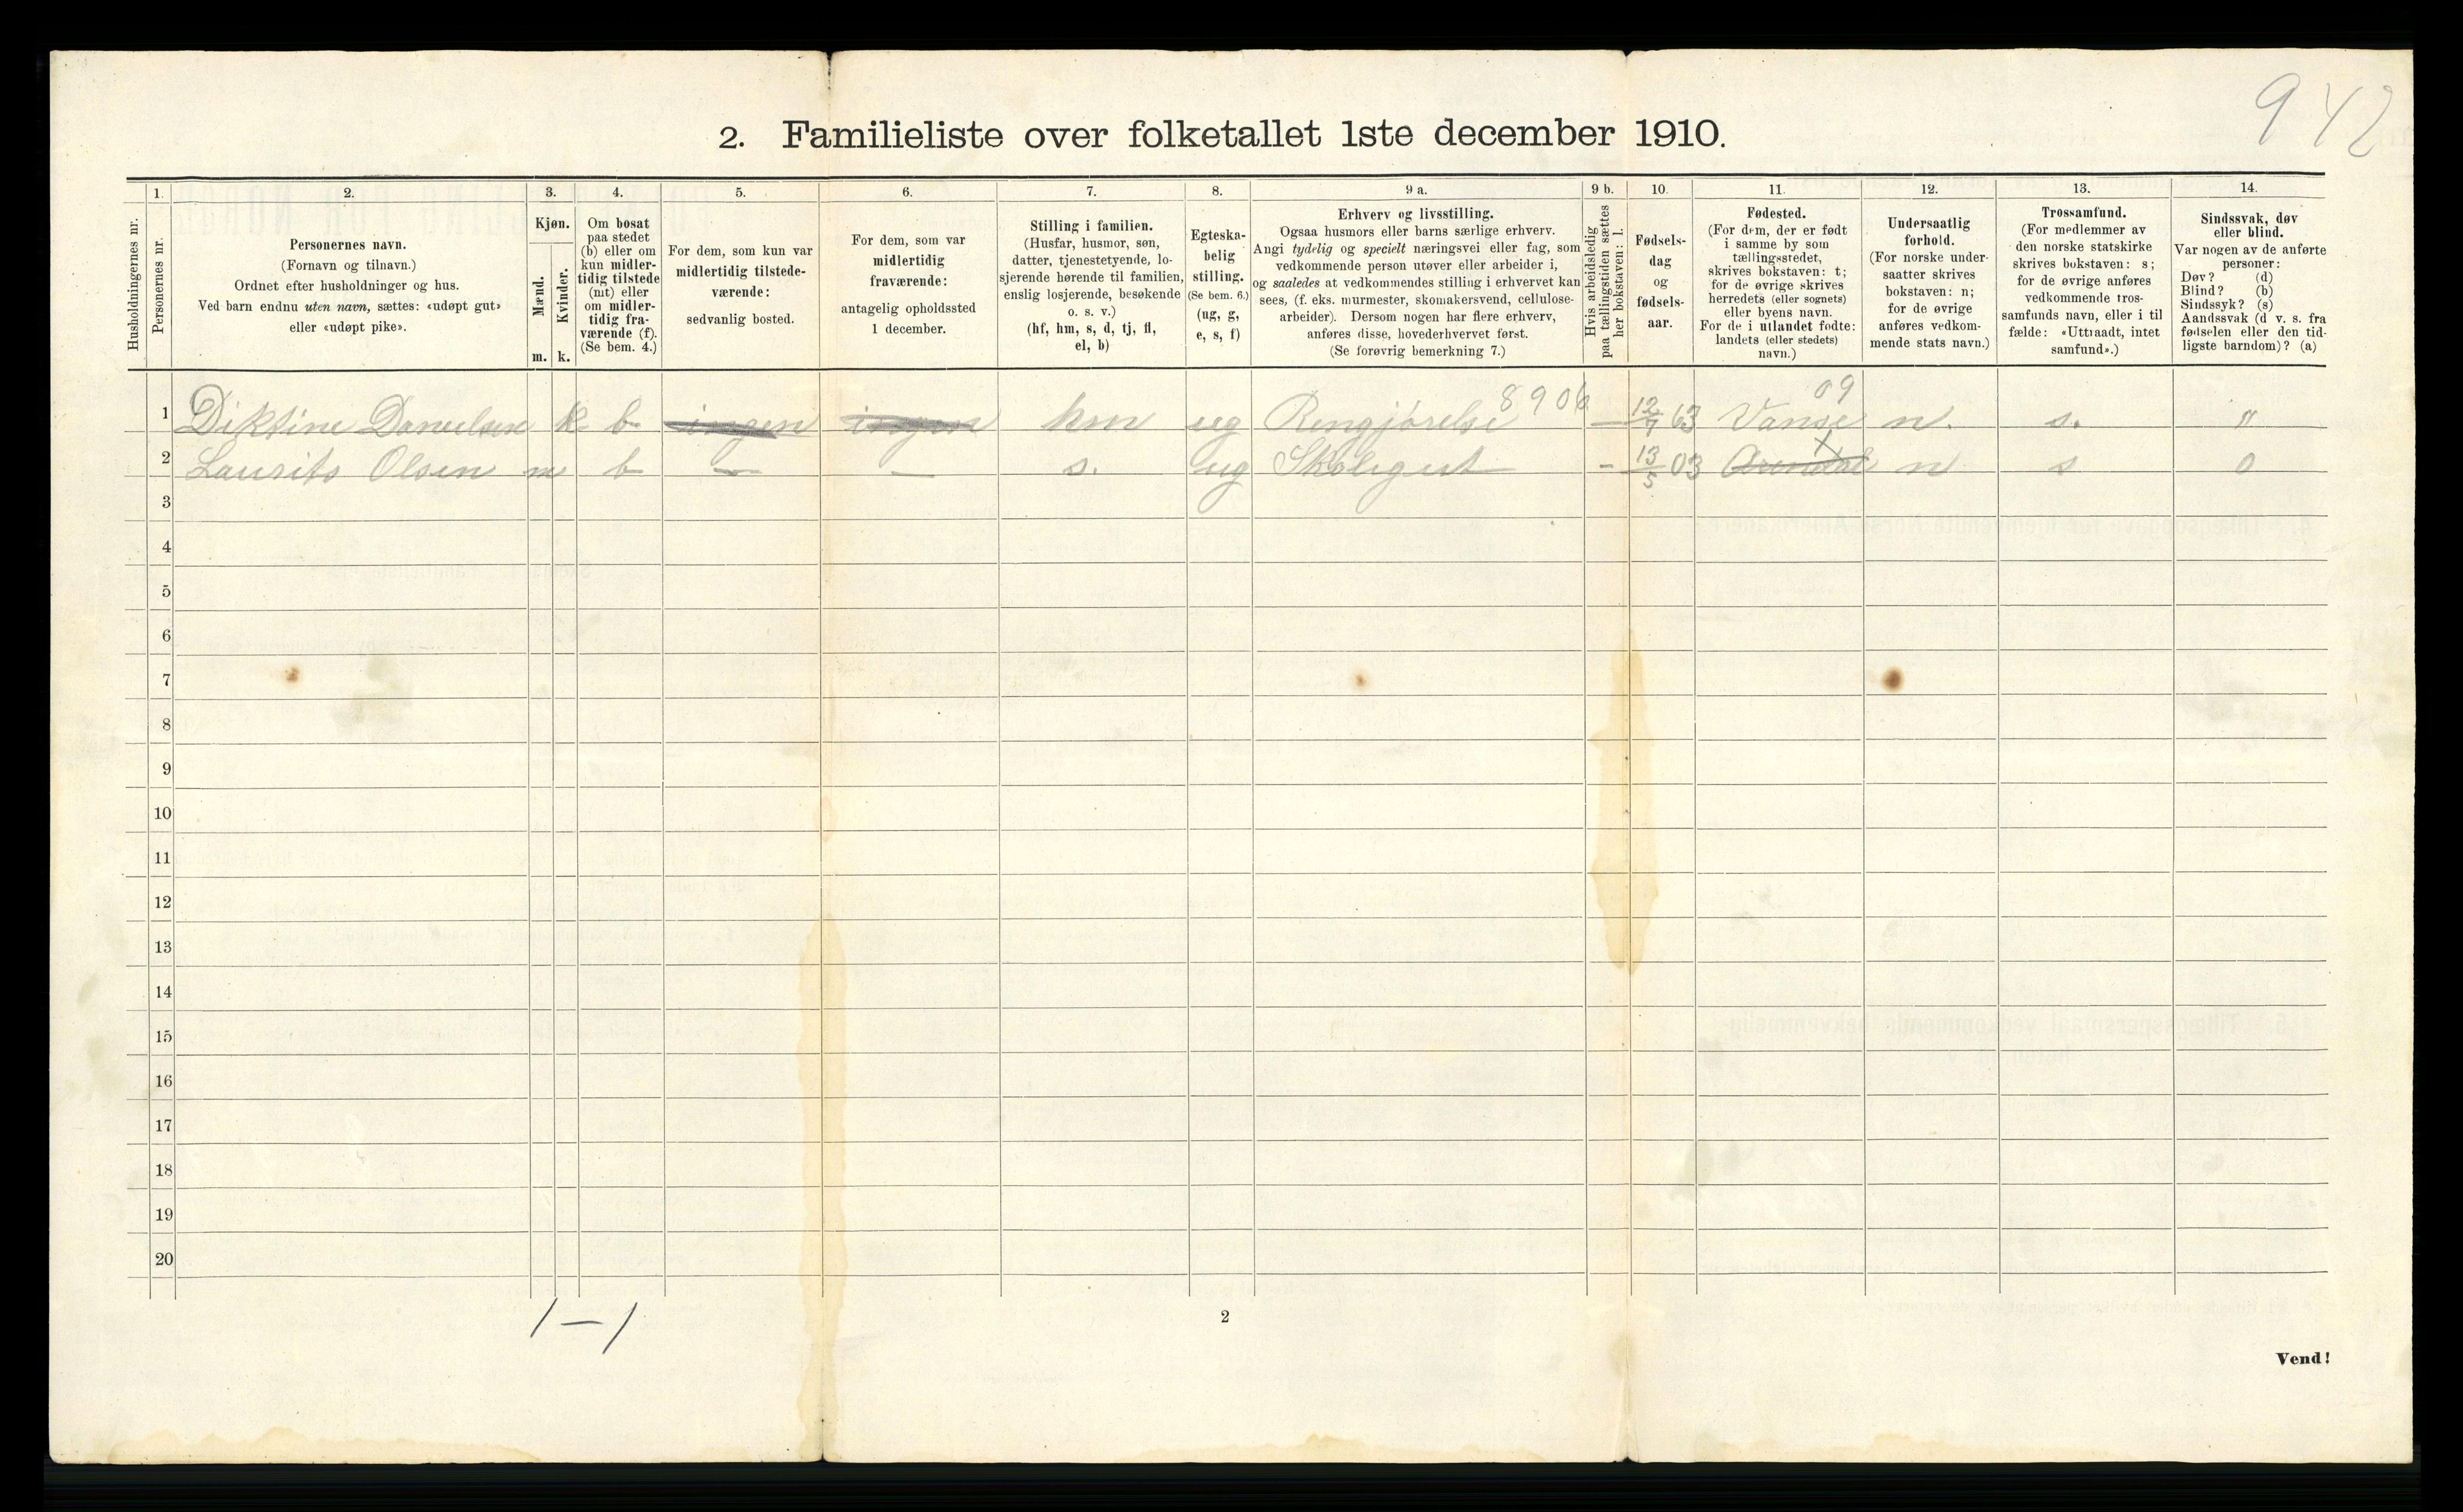 942
2. Familieliste over folketallet 1ste december 1910.
Husholdningernes nr.
1.
Personernes nr.
2.
Personernes navn.
(Fornavn og tilnavn.)
Ordnet efter husholdninger og hus.
Ved barn endnu uten navn, sættes: «udøpt gut»
eller «udøpt pike».
3.
Kjøn.
Mænd.
Kvinder.
m. k.
4.
Om bosat
paa stedet
(b) eller om
kun midler-
tidig tilstede
(mt) eller
om midler-
tidig fra-
værende (f).
(Se bem. 4.)
5.
For dem, som kun var
midlertidig tilstede-
værende:
sedvanlig bosted.
6.
For dem, som var
midlertidig
fraværende:
antagelig opholdssted
1 december.
7.
Stilling i familien.
(Husfar, husmor, søn,
datter, tjenestetyende, lo-
sjerende hørende til familien,
enslig losjerende, besøkende
o. s. v.)
(hf, hm, s, d, tj, fl,
el, b)
8.
Egteska-
belig
stilling.
(Se bem. 6.)
(ug, g,
e, s, f)
9 a.
Erhverv og livsstilling.
Ogsaa husmors eller barns særlige erhverv.
Angi tydelig og specielt næringsvei eller fag, som
vedkommende person utøver eller arbeider i,
og saaledes at vedkommendes stilling i erhvervet kan
sees, (f. eks. murmester, skomakersvend, cellulose-
arbeider). Dersom nogen har flere erhverv,
anføres disse, hovederhvervet først.
(Se forøvrig bemerkning 7.)
9 b.
Hvis arbeidsledig
paa tællingstiden sættes
her bokstaven: l.
10.
Fødsels-
dag
og
fødsels-
aar.
11.
Fødested.
(For dem, der er født
i samme by som
tællingsstedet,
skrives bokstaven: t;
for de øvrige skrives
herredets (eller sognets)
eller byens navn.
For de i utlandet fødte:
landets (eller stedets)
navn.)
12.
Undersaatlig
forhold.
(For norske under-
saatter skrives
bokstaven: n;
for de øvrige
anføres vedkom-
mende stats navn.)
13.
Trossamfund.
(For medlemmer av
den norske statskirke
skrives bokstaven: s;
for de øvrige anføres
vedkommende tros-
samfunds navn, eller i til
fælde: «Uttraadt, intet
samfund».)
14.
Sindssvak, døv
eller blind.
Var nogen av de anførte
personer:
Døv? (d)
Blind? (b)
Sindssyk? (s)
Aandssvak (d v. s. fra
fødselen eller den tid-
ligste barndom)? (a)
8906 09
1 Diktine Danielsen k b ingen ingen hm ug Rengjørelse – 12/7 63 Vanse n. s. "
2 Laurits Olsen m b — — s. ug Skolegut – 13/5 03 Arendal n s 0
3
4
5
6
7
8
9
10
11
12
13
14
15
16
17
18
19
20
1 — 1
2
Vend!